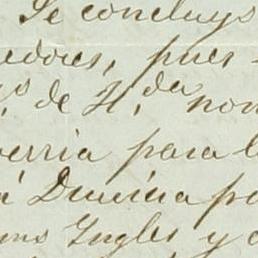 Se concluys
edores, pues
s de H. da non
erria para l
Ducúia pa
ms Ingles y c